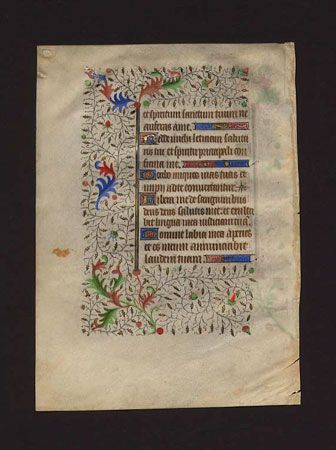 et spiritum sanctum tuum ne
auferas a me.
Redde michi leticiam saluta
ris tui et spiritu principali con
firma me.
Docebo iniquos vias tuas et
impii ad te convertentur.
Libera me de sanguinibus
deus deus salutis mee et exulta
bit lingua mea iusticiam tuam
Domine labia mea aperies
et os meum annunciabit
laudem tuam.